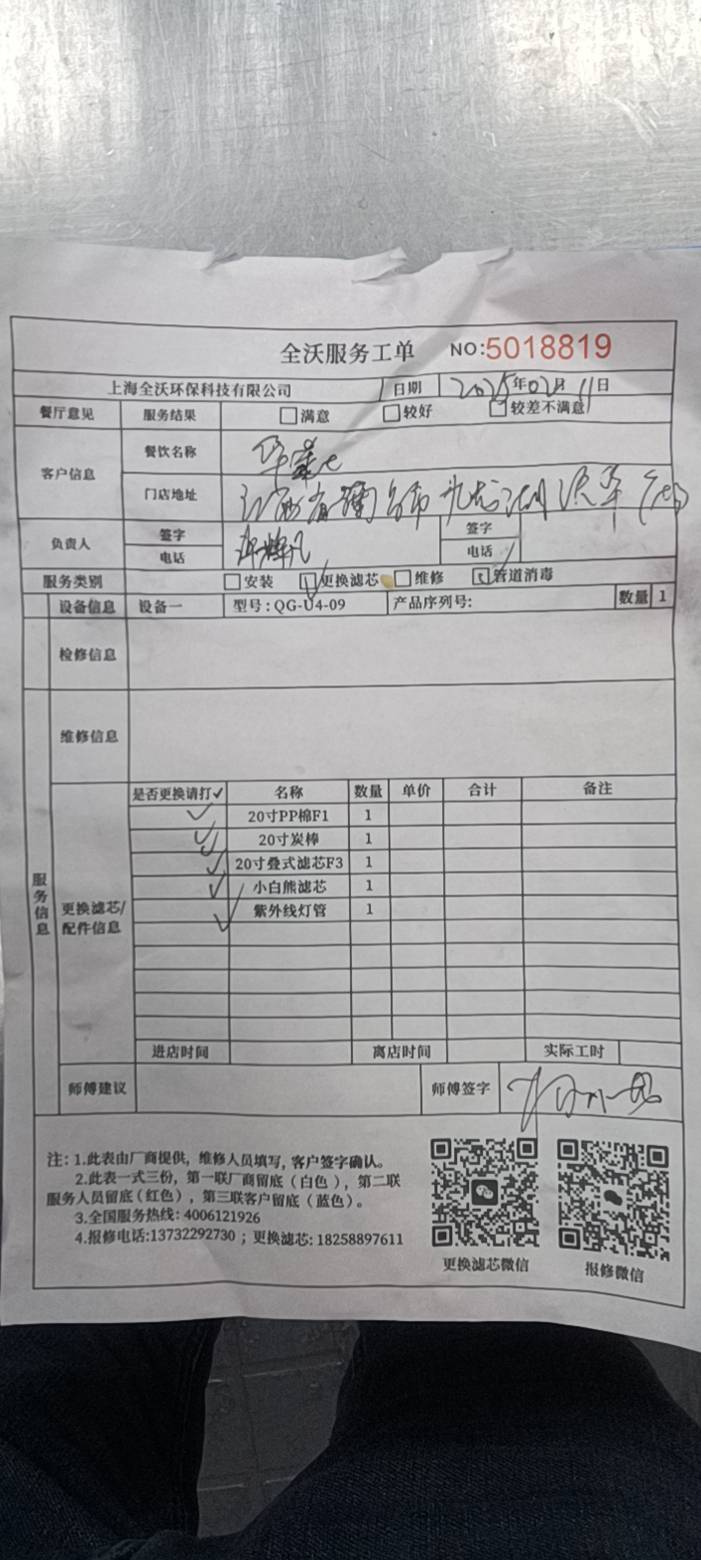 全沃服务工单 NO:5018819
上海全沃环保科技有限公司 日期 2025年02月11日
餐厅意见 服务结果 □满意 □较好 □较差不满意
客户信息 餐饮名称 华莱士
门店地址 江西省 市九龙湖
负责人 签字 签字
电话 电话
服务类别 □安装 □更换滤芯 □维修 □管道消毒
设备信息 设备一 型号:QG-U4-09 产品序列号: 数量 1
检修信息
维修信息
服务信息
更换滤芯/配件信息
是否更换请打✓ 名称 数量 单价 合计 备注
✓ 20寸PP棉F1 1
✓ 20寸炭棒 1
✓ 20寸叠式滤芯F3 1
✓ 小白熊滤芯 1
✓ 紫外线灯管 1
进店时间 离店时间 实际工时
师傅建议 师傅签字
注: 1.此表由厂商提供, 维修人员填写, 客户签字确认。
2.此表一式三份, 第一联厂商留底(白色), 第二联
服务人员留底(红色), 第三联客户留底(蓝色)。
3.全国服务热线: 4006121926
4.报修电话:13732292730 ; 更换滤芯: 18258897611
更换滤芯微信 报修微信